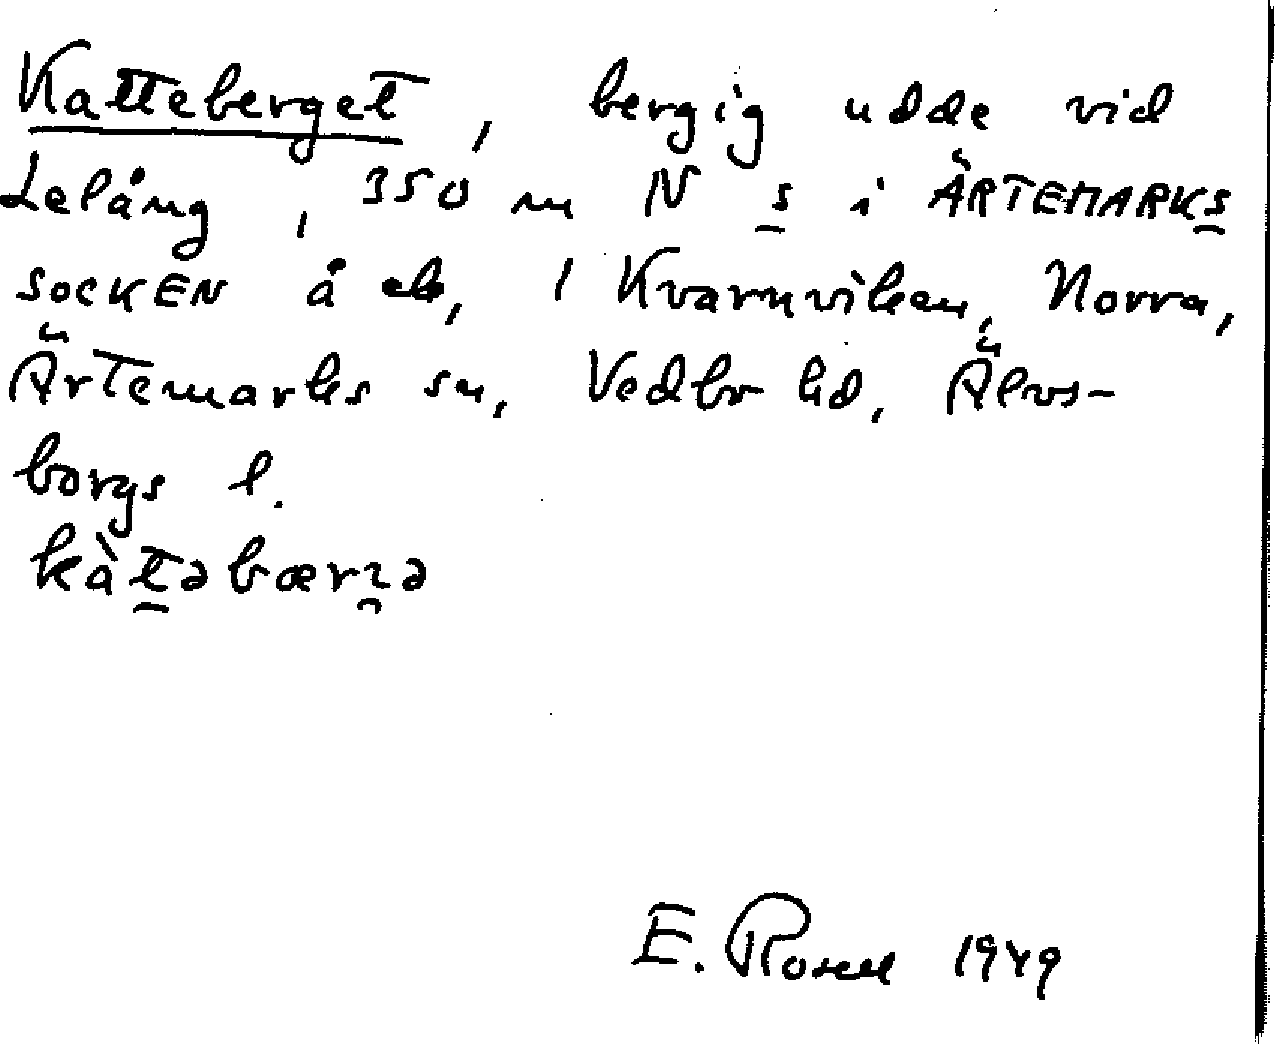 Katteberget, bergig udde vid
Lelång, 350 m N s i ÄRTEMARKS
SOCKEN å eb, i Kvarnviken, Norra,
Ärtemarks sn, Vedbo hd, Älvs-
borgs l.
kàt̲əbærɿ̯ə
E. Rosell 1949